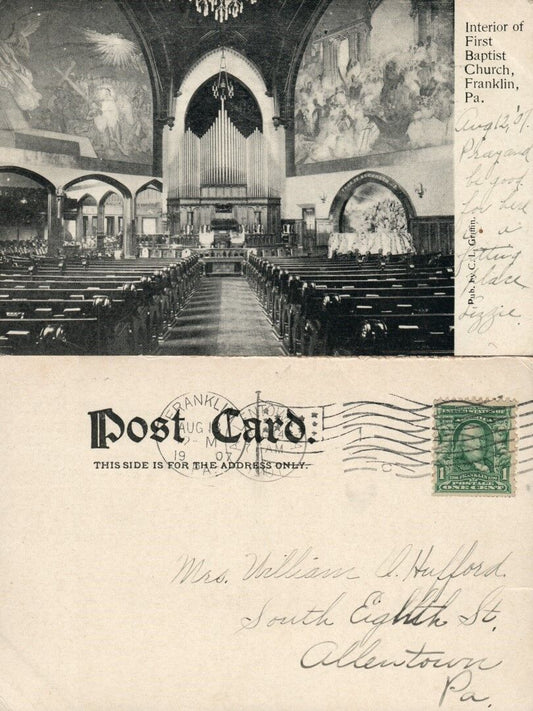 Interior of
First
Baptist
Church,
Franklin,
Pa.
Aug 12, '07.
Pray and
be good
for here
is a
fitting
place
Lizzie.
Pub. by C. L. Griffin.
Post Card.
THIS SIDE IS FOR THE ADDRESS ONLY.
FRANKLIN
AUG
M
1907
PA.
AM
UNITED STATES OF AMERICA
1
FRANKLIN
POSTAGE
ONE CENT
1
Mrs. William A. Hufford.
South Eighth St,
Allentown
Pa.